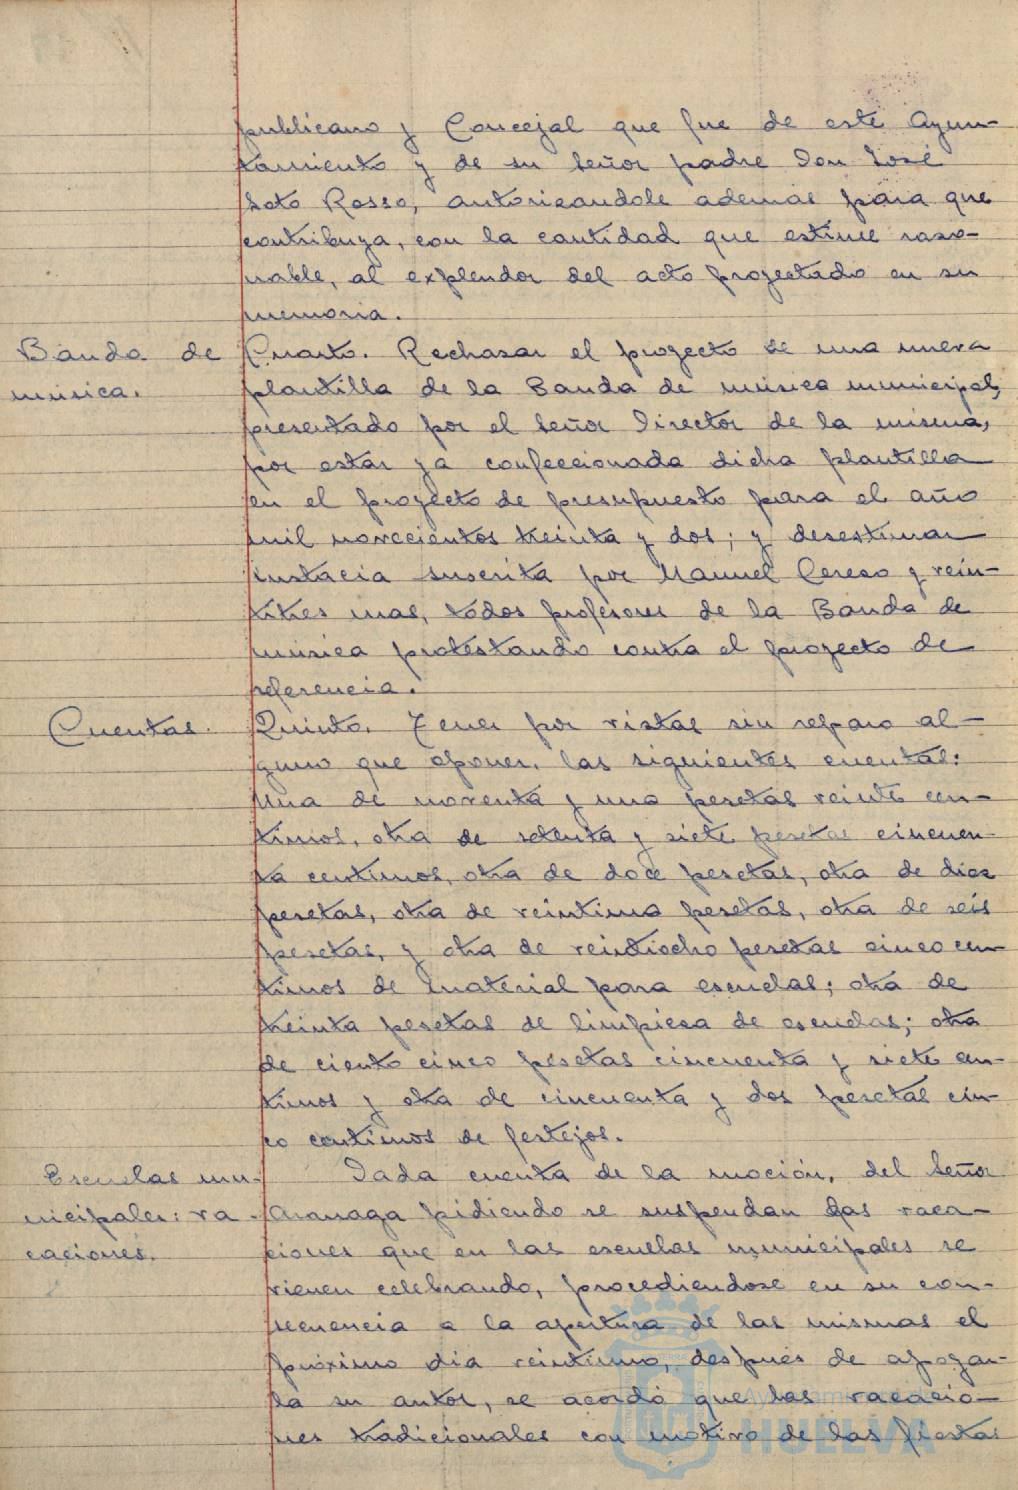 publicano y Concejal que fue de este Ayun-
tamiento y de su señor padre Don José
Soto Rosso, autorisandole ademas para que
contribuya, con la cantidad que estime raso-
nable, al explendor del acto projectado en su
memoria.
Banda de
música.
Cuarto. Rechasar el proyecto de una nueva
plantilla de la Banda de música municipal,
presentado por el señor Director de la misma,
por estar ya confeccionada dicha plantilla
en el proyecto de presupuesto para el año
mil novecientos treinta y dos; y desestimar
instacia suscrita por Manuel Cereso y vein-
titres mas, todos profesores de la Banda de
música protestando contra el proyecto de
referencia.
Cuentas.
Quinto. Tener por vistas sin reparo al-
guno que oponer, las siguientes cuentas:
Una de noventa y una pesetas veinte cen-
timos, otra de setenta y siete pesetas cincuen-
ta centimos, otra de doce pesetas, otra de dies
pesetas, otra de veintiuna pesetas, otra de seis
pesetas, y otra de veintiocho pesetas cinco cen-
timos de material para escuelas; otra de
treinta pesetas de limpiesa de escuelas; otra
de ciento cinco pesetas cincuenta y siete cen-
timos y otra de cincuenta y dos pesetas cin-
co centimos de festejos.
Escuelas mu-
nicipales: va-
caciones.
Dada cuenta de la moción, del Señor
Aranaga pidiendo se suspendan las vaca-
ciones que en las escuelas municipales se
vienen celebrando, procediendose en su con-
secuencia a la apertura de las mismas el
próximo dia veintiuno, después de apoyar-
la su autor, se acordó que las vacacio-
nes tradicionales con motivo de las fiestas
Ayuntamiento de
HUELVA